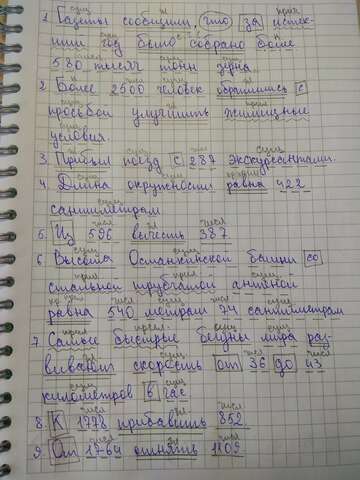 1. Газеты сообщили, что за истек-
ший год было собрано более
580 тысяч тонн зерна.
2 Более 2500 человек обратились с
просьбой улучшить жилищные
условия.
3. Прибыл поезд с 287 экскурсантами.
4. Длина окружности равна 422
сантиметрам
5. Из 596 вычесть 387
6 Высота Останкинской башни со
стальной трубчатой антенной
равна 540 метрам 74 сантиметрам
7. Самые быстрые бегуны мира раз-
вивают скорость от 36 до 43
километров в час
8. К 1778 прибавить 852.
9. От 1764 отнять 1109